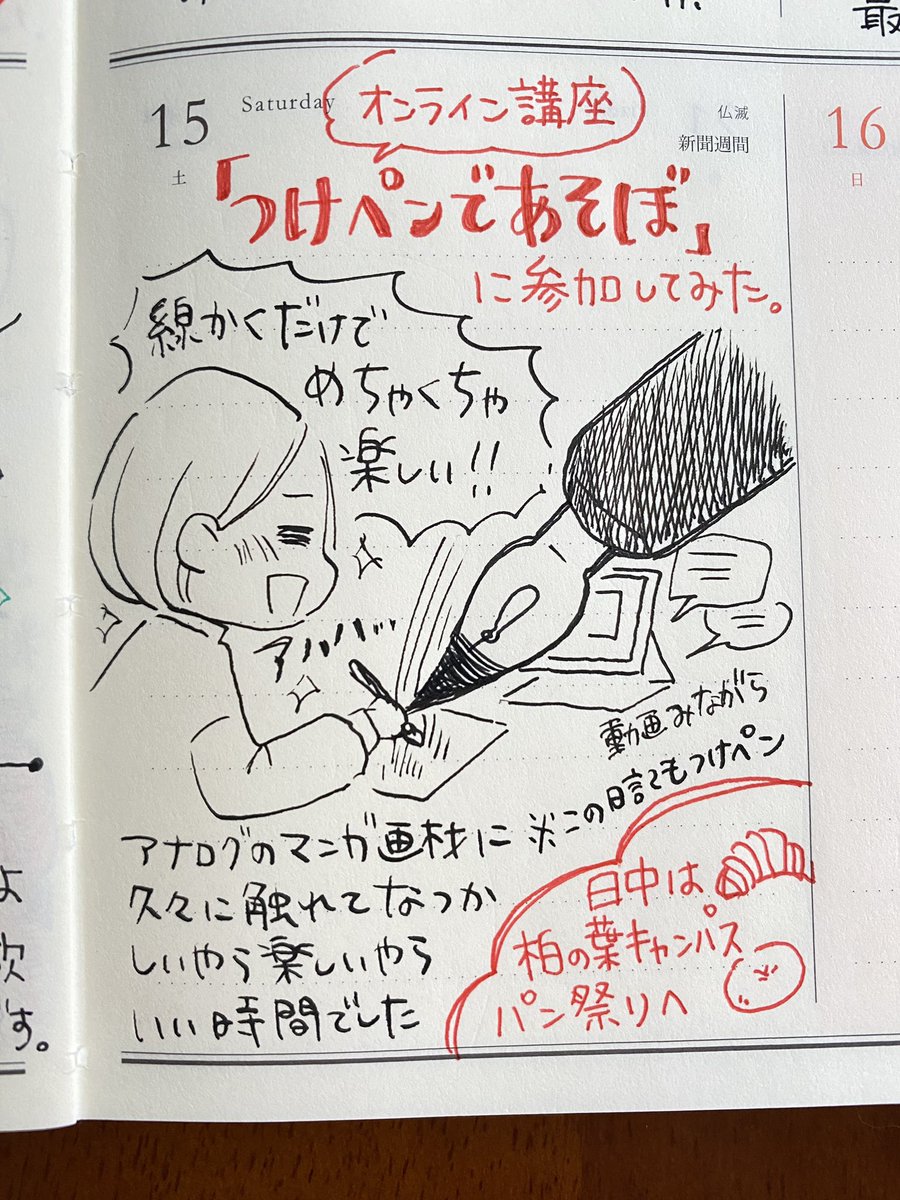 最
15
Saturday
土
仏滅
新聞週間
16
日
オンライン講座
「つけペンであそぼ」
に参加してみた。
線かくだけで
めちゃくちゃ
楽しい!!
アハハハ
動画みながら
※この日記もつけペン
アナログのマンガ画材に
久々に触れてなつか
しいやら楽しいやら
いい時間でした
日中は
柏の葉キャンパス
パン祭りへ
よ
次
です。